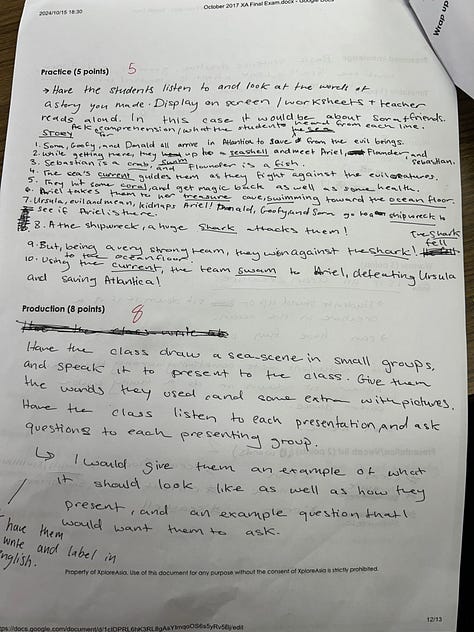 2024/10/15 18:30
October 2017 XA Final Exam.docx - Google Docs
Wrap up
Practice (5 points) 5
→ Have the students listen to and look at the words of
a story you made. Display on screen / worksheets + teacher
reads aloud. In this case it would be about Sora + friends.
Ask for comprehension / what the students heard from each line.
STORY
1. Sora, Goofy, and Donald all arrive in Atlantica to save the sea from the evil beings.
2. While getting there, they up be a seashell and meet Ariel, Flounder, and
Sebastian.
3. Sebastian is a crab, and Flounder is a fish.
4. The sea's current guides them as they fight against the evil creatures.
5. They find some coral, and get magic back as well as some health.
6. Ariel takes them to her treasure cave, swimming toward the ocean floor.
7. Ursula, evil and mean, kidnaps Ariel! Donald, Goofy, and Sora go to a shipwreck to
see if Ariel is there.
8. At the shipwreck, a huge shark attacks them!
9. But, being a very strong team, they won against the shark! The shark fell
to the ocean floor.
10. Using the current, the team swam to Ariel, defeating Ursula
and saving Atlantica!
Production (8 points) 8
Have the class draw a sea-scene in small groups,
and speak it to present to the class. Give them
the words they used and some extra with pictures.
Have the class listen to each presentation, and ask
questions to each presenting group.
↳ I would give them an example of what
it should look like as well as how they
present, and an example question that I
would want them to ask.
have them
write and label in
english.
Property of XploreAsia. Use of this document for any purpose without the consent of XploreAsia is strictly prohibited.
12/13